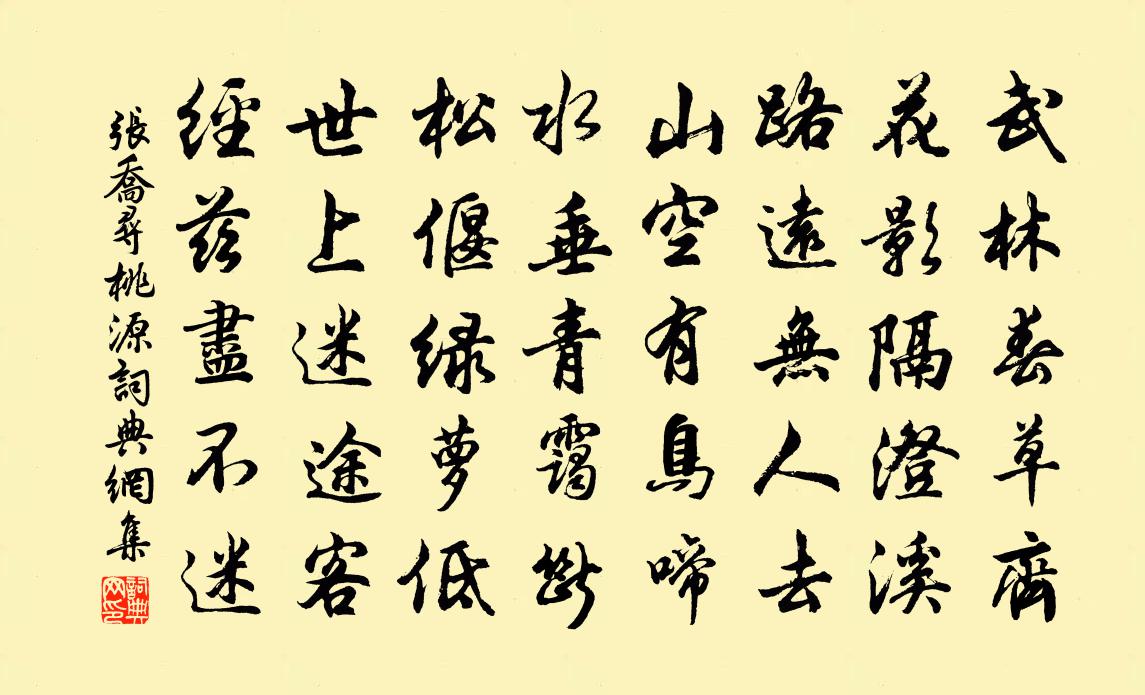 武林春草齊
花影隔澄溪
路遠無人去
山空有鳥啼
水垂青靄斷
松偃綠蘿低
世上迷途客
經茲盡不迷
張喬尋桃源詞典網集
詞典網印